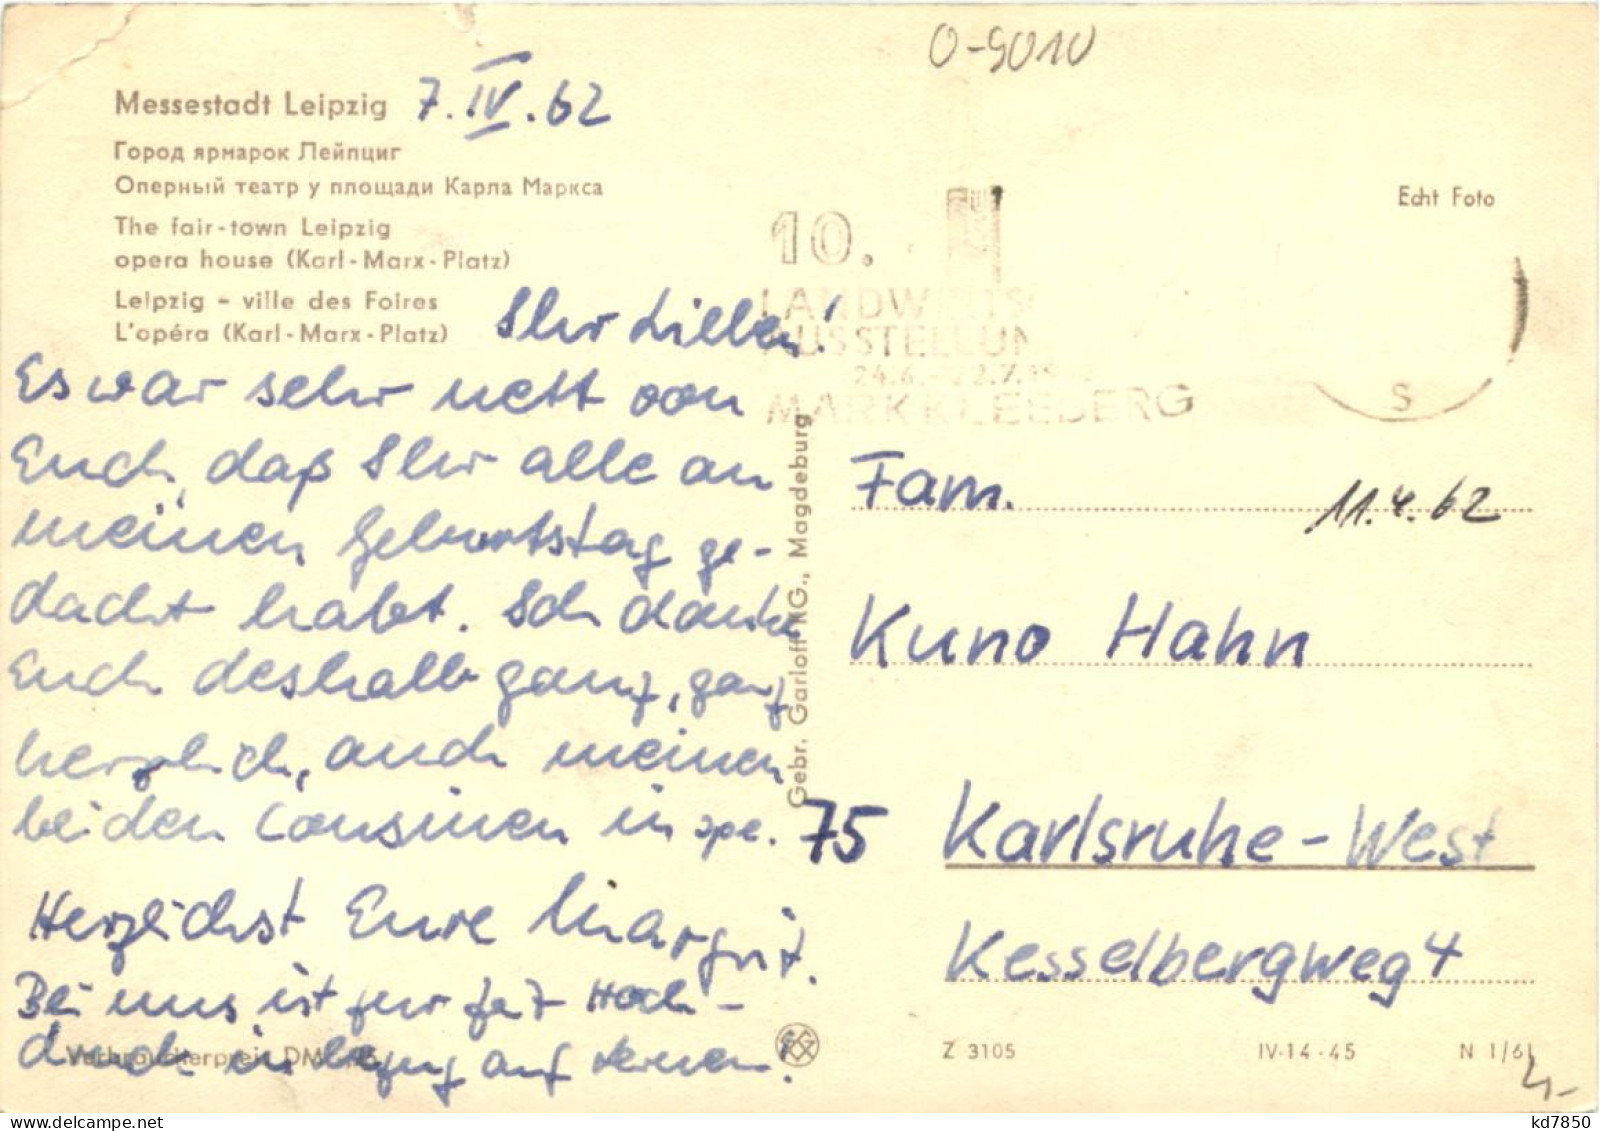 O-9010
Messestadt Leipzig 7.IV.62
Город ярмарок Лейпциг
Оперный театр у площади Карла Маркса
The fair-town Leipzig
opera house (Karl-Marx-Platz)
Leipzig - ville des Foires
L'opéra (Karl-Marx-Platz)
Echt Foto
10.
LANDWIRTS
AUSSTELLUN
24.6.-22.7.
MARKKLEEBERG
S
Ihr Lieben!
Es war sehr nett von
Euch, daß Ihr alle an
meinen Geburtstag ge-
dacht habt. Ich danke
Euch deshalb ganz, ganz
herzlich, auch meinen
beiden Cousinen in spe.
Herzlichst Eure Margrit.
Bei uns ist zur Zeit Hoch-
druck in bezug auf lernen!
Verbraucherpreis DM
Gebr. Garloff KG., Magdeburg
Fam.
11.4.62
Kuno Hahn
75 Karlsruhe-West
Kesselbergweg 4
Z 3105 IV-14-45 N 1/61
kd7850